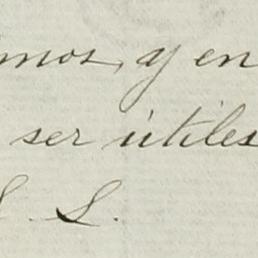 mos, y en
ser útiles
S. S.